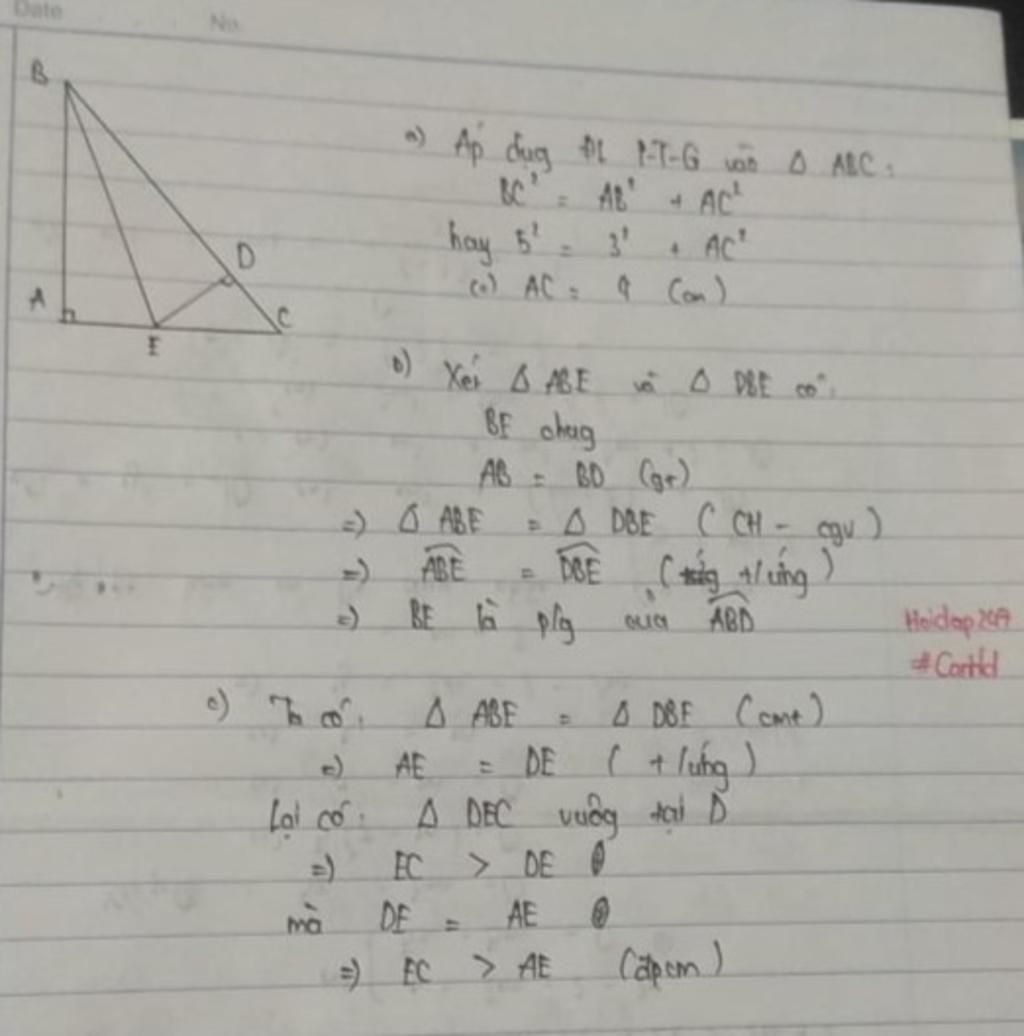 Date
No.
B
D
A
C
E
a) Áp dụg ĐL P-T-G vào Δ ABC:
BC² = AB² + AC²
hay 5² = 3² + AC²
(=) AC = 4 (cm)
b) Xét Δ ABE và Δ DBE có:
BE chug
AB = BD (gt)
=) Δ ABE = Δ DBE ( CH - cgv )
=) ABE = DBE ( t/ứng )
=) BE là p/g của ABD
Hoidap247
#CanHd
c) Ta có: Δ ABE = Δ DBE (cmt)
=) AE = DE ( t/ứng )
Lại có: Δ DEC vuôg tại D
=) EC > DE
mà DE = AE
=) EC > AE (đpcm)